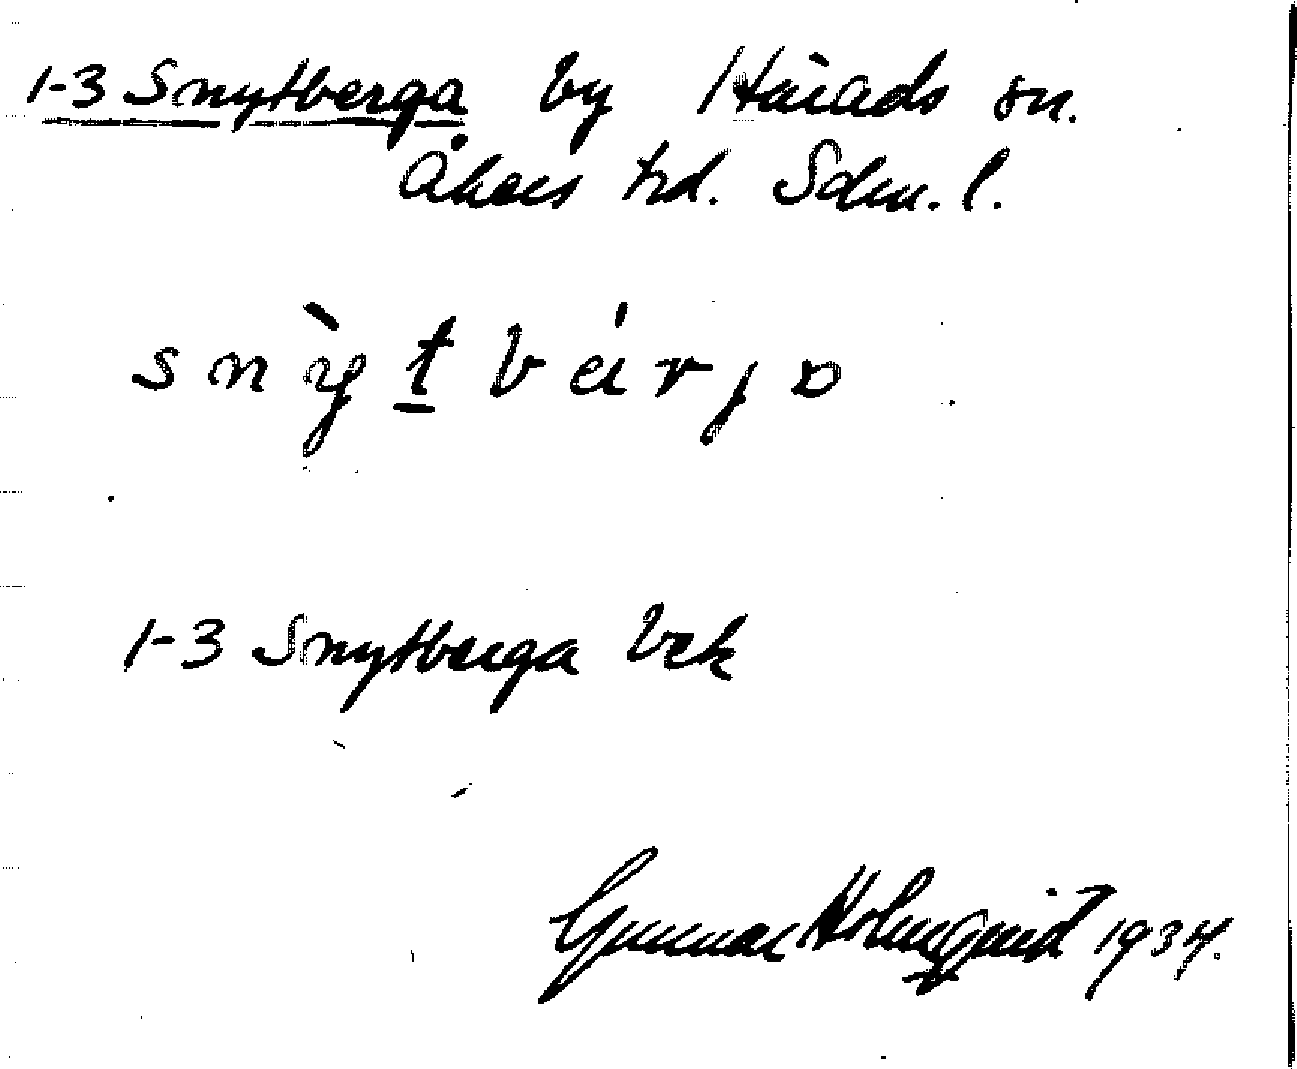 1-3 Snytberga by Härads sn.
Åkers hd. Sdm. l.
snỳt bä́rja
1-3 Snytberga bek
Gunnar Holmquist 1934.